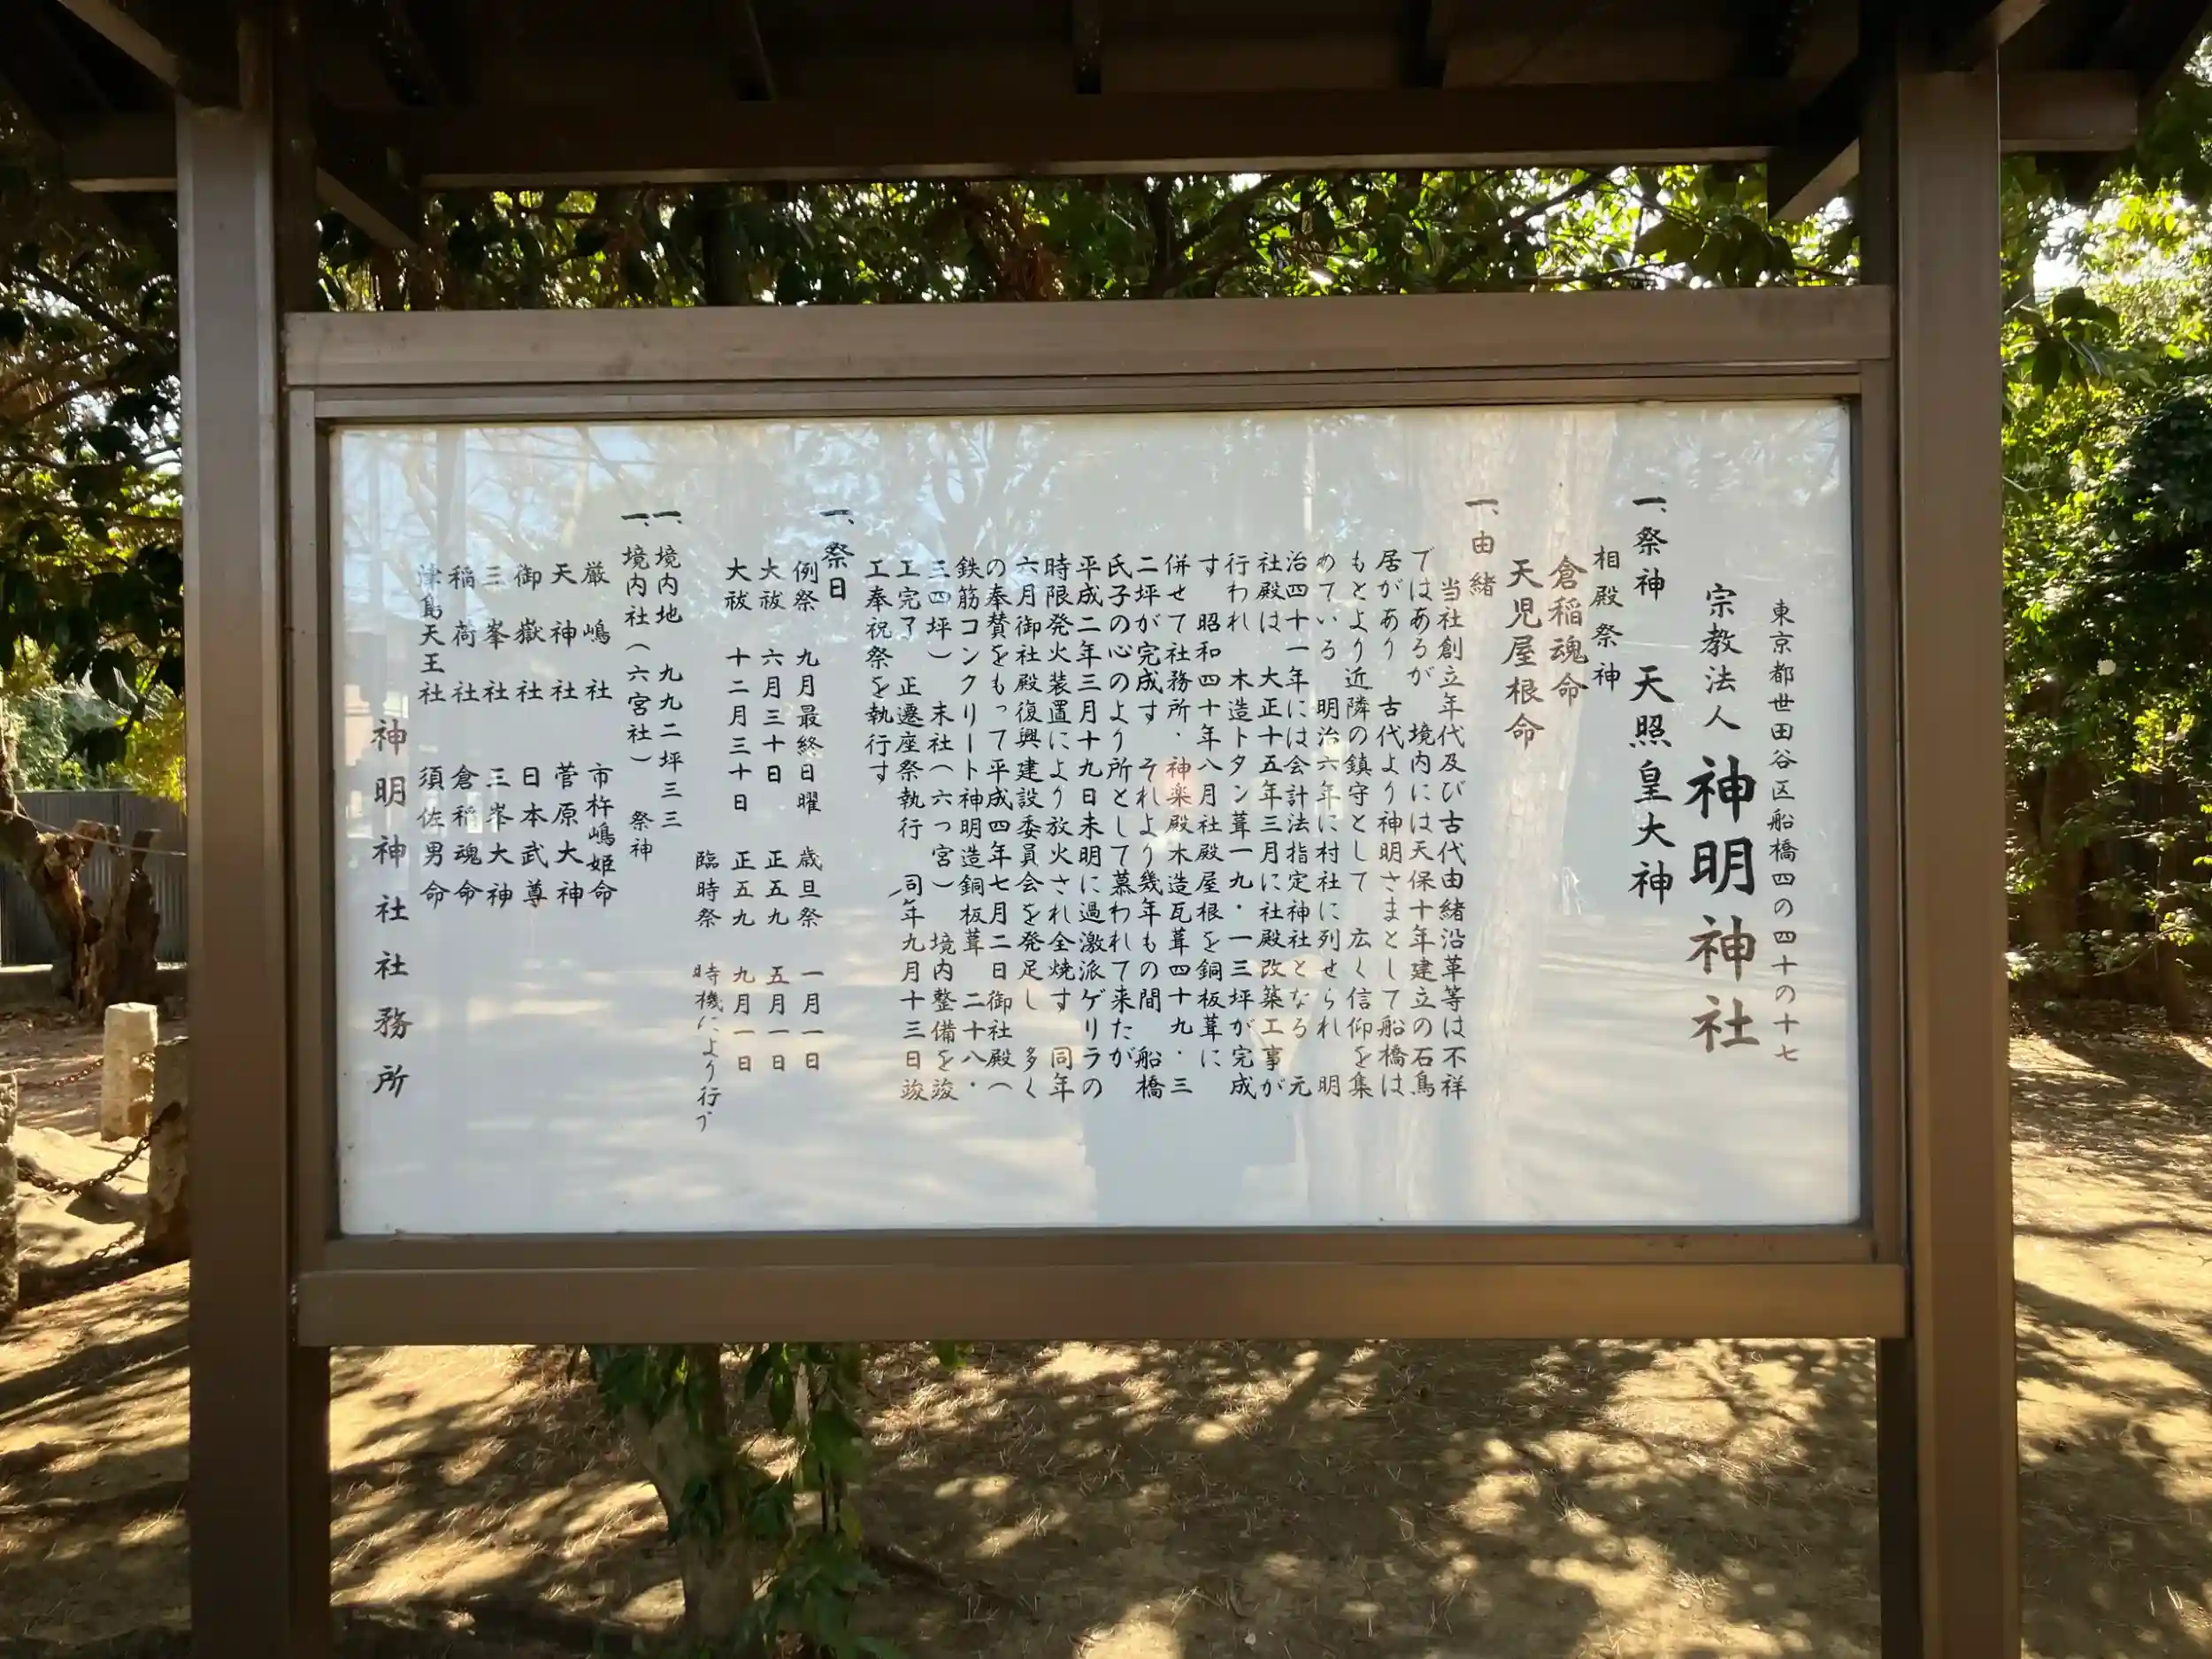 東京都世田谷区船橋四の四十の十七
宗教法人 神明神社
一、祭神 天照皇大神
相殿祭神
倉稲魂命
天児屋根命
一、由緒
当社創立年代及び古代由緒沿革等は不祥
ではあるが 境内には天保十年建立の石鳥
居があり 古代より神明さまとして船橋は
もとより近隣の鎮守として 広く信仰を集
めている 明治六年に村社に列せられ 明
治四十一年には会計法指定神社となる 元
社殿は 大正十五年三月に社殿改築工事が
行われ 木造トタン葺一九・一三坪が完成
す 昭和四十年八月社殿屋根を銅板葺に
併せて社務所・神楽殿木造瓦葺四十九・三
二坪が完成す それより幾年もの間 船橋
氏子の心のより所として慕われて来たが
平成二年三月十九日未明に過激派ゲリラの
時限発火装置により放火され全焼す 同年
六月御社殿復興建設委員会を発足し 多く
の奉賛をもって平成四年七月二日御社殿（
鉄筋コンクリート神明造銅板葺 二十八・
三四坪） 末社（六っ宮） 境内整備を竣
工完了 正遷座祭執行 同年九月十三日竣
工奉祝祭を執行す
一、祭日
例祭 九月最終日曜 歳旦祭 一月一日
大祓 六月三十日 正五九 五月一日
大祓 十二月三十日 正五九 九月一日
臨時祭 時機により行う
一、境内地 九九二坪三三
一、境内社（六宮社） 祭神
厳嶋社 市杵嶋姫命
天神社 菅原大神
御嶽社 日本武尊
三峯社 三峯大神
稲荷社 倉稲魂命
津島天王社 須佐男命
神明神社社務所